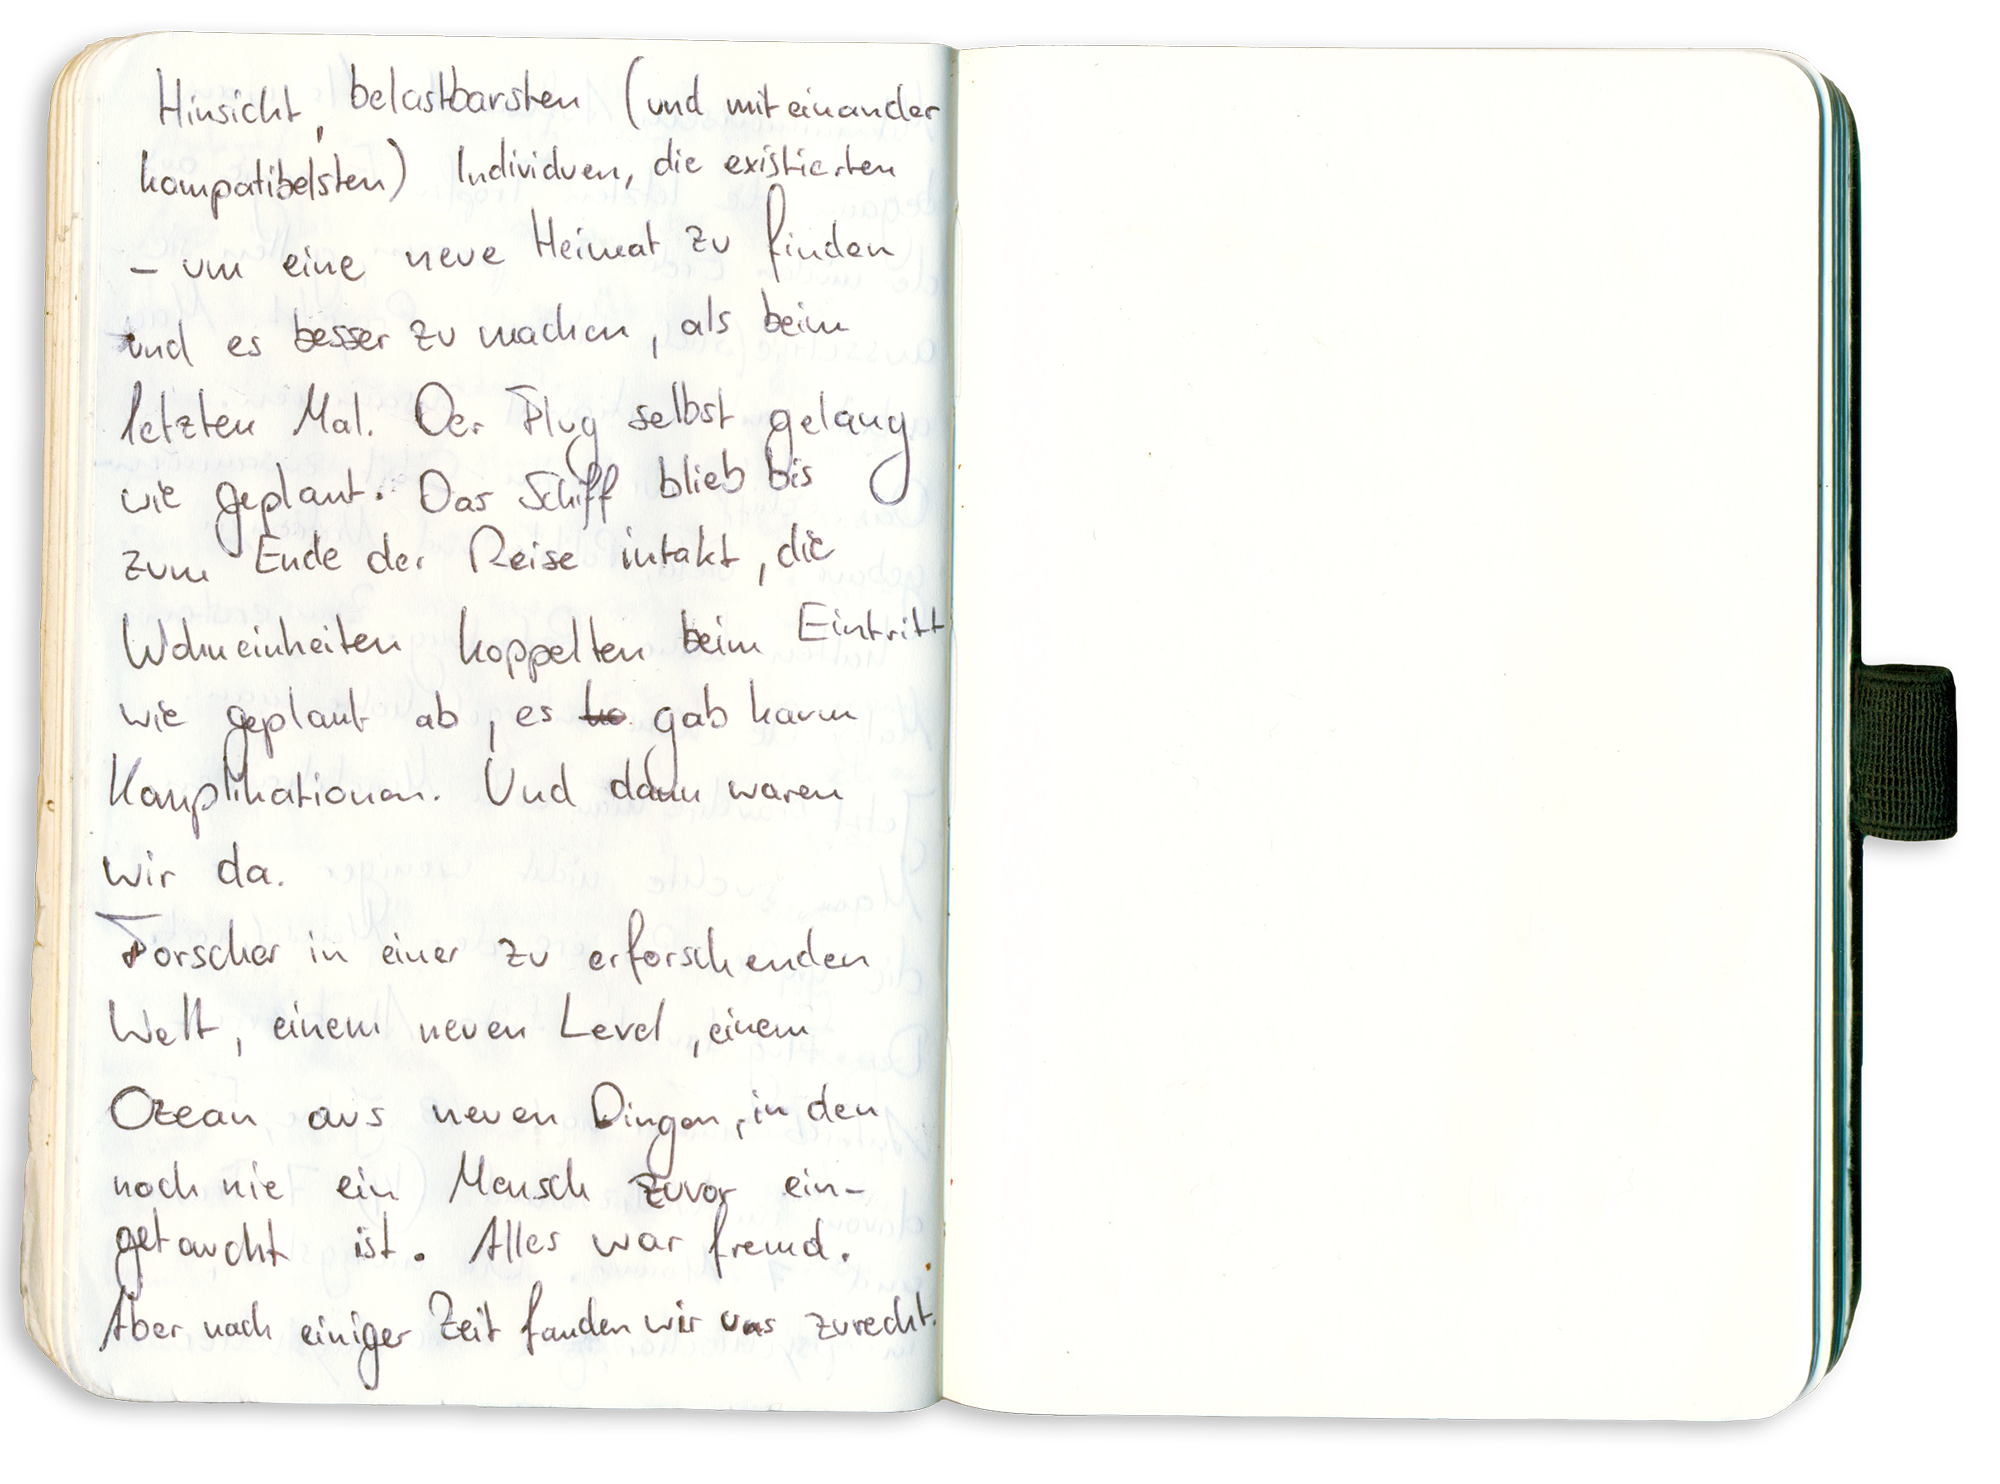 Hinsicht, belastbarsten (und miteinander
kompatibelsten) Individuen, die existierten
– um eine neue Heimat zu finden
und es besser zu machen, als beim
letzten Mal. Der Flug selbst gelang
wie geplant. Das Schiff blieb bis
zum Ende der Reise intakt, die
Wohneinheiten koppelten beim Eintritt
wie geplant ab, es gab kaum
Komplikationen. Und dann waren
wir da.
Forscher in einer zu erforschenden
Welt, einem neuen Level, einem
Ozean aus neuen Dingen, in den
noch nie ein Mensch zuvor ein-
getaucht ist. Alles war fremd.
Aber nach einiger Zeit fanden wir uns zurecht.